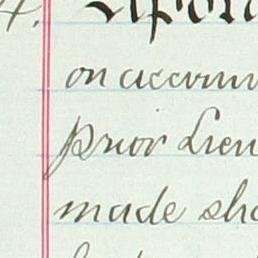 4. Upon
on accoun
prior Lien
made sha